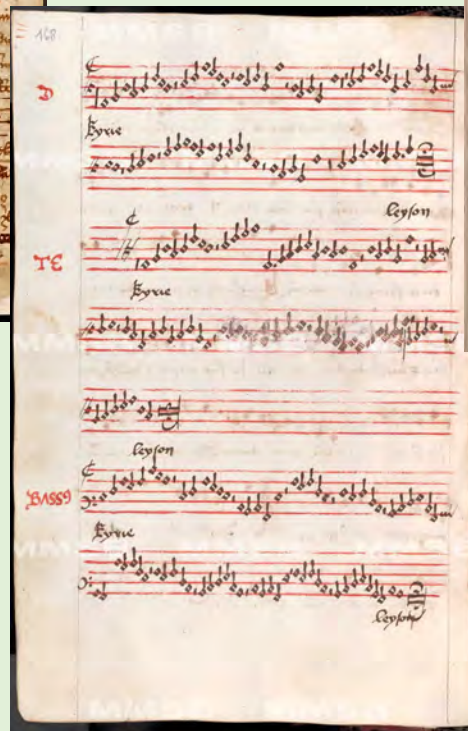 168
D
Kyrie
leyson
TE
Kyrie
leyson
BASSG
Kyrie
leyson